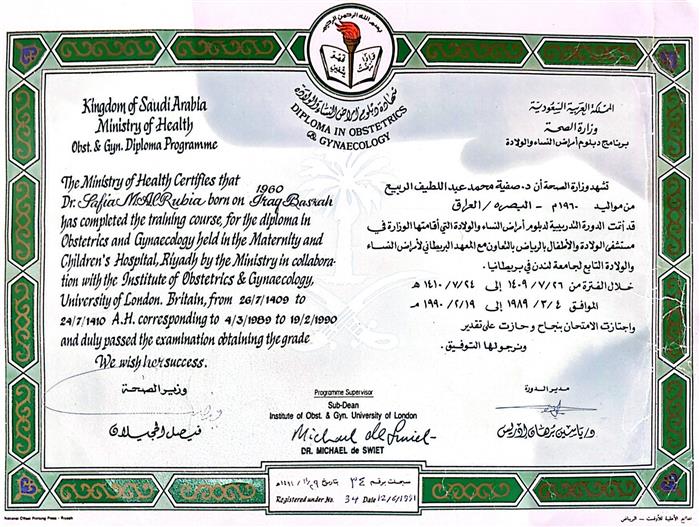 بسم الله الرحمن الرحيم
شهادة دبلوم أمراض النساء والولادة
DIPLOMA IN OBSTETRICS
& GYNAECOLOGY
Kingdom of Saudi Arabia
Ministry of Health
Obst. & Gyn. Diploma Programme
The Ministry of Health Certifies that
1960
Dr. Safia M. Al Rubia born on Iraq Basrah
has completed the training course, for the diploma in
Obstetrics and Gynaecology held in the Maternity and
Children's Hospital, Riyadh by the Ministry in collabora-
tion with the Institute of Obstetrics & Gynaecology,
University of London. Britain, from 26/7/1409 to
24/7/1410 A.H. corresponding to 4/3/1989 to 19/2/1990
and duly passed the examination obtaining the grade
We wish her success.
المملكة العربية السعودية
وزارة الصحة
برنامج دبلوم أمراض النساء والولادة
تشهد وزارة الصحة أن د. صفية محمد عبد اللطيف الربيع
من مواليد ١٩٦٠م - البصره/العراق
قد أتمت الدورة التدريبية لدبلوم أمراض النساء والولادة التي أقامتها الوزارة في
مستشفى الولادة والأطفال بالرياض بالتعاون مع المعهد البريطاني لأمراض النساء
والولادة التابع لجامعة لندن في بريطانيا.
خلال الفترة من ١٤٠٩/٧/٢٦ إلى ١٤١٠/٧/٢٤ هـ
الموافق ١٩٨٩/٣/٤ إلى ١٩٩٠/٢/١٩ م
واجتازت الامتحان بنجاح وحازت على تقدير
ونرجو لها التوفيق.
وزير الصحة
فيصل الحجيلان
Programme Supervisor
Sub-Dean
Institute of Obst. & Gyn. University of London
Michael de Swiet
DR. MICHAEL de SWIET
مدير الدورة
د/ ياسين برهان ادريس
سجلت برقم ٣٤ تاريخ
Registered under No. 34 Date 12/6/1991
National Offset Printing Press - Riyadh
مطابع الأهلية للأوفست - الرياض